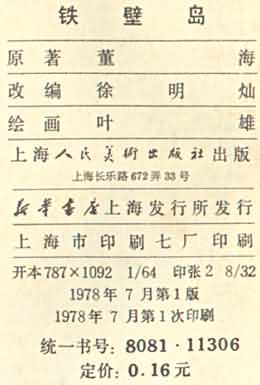 铁壁岛
原著 董海
改编 徐明灿
绘画 叶雄
上海人民美術出版社出版
上海长乐路672弄33号
新华书店上海发行所发行
上海市印刷七厂印刷
开本787×1092 1/64 印张2 8/32
1978年7月第1版
1978年7月第1次印刷
统一书号：8081·11306
定价：0.16元